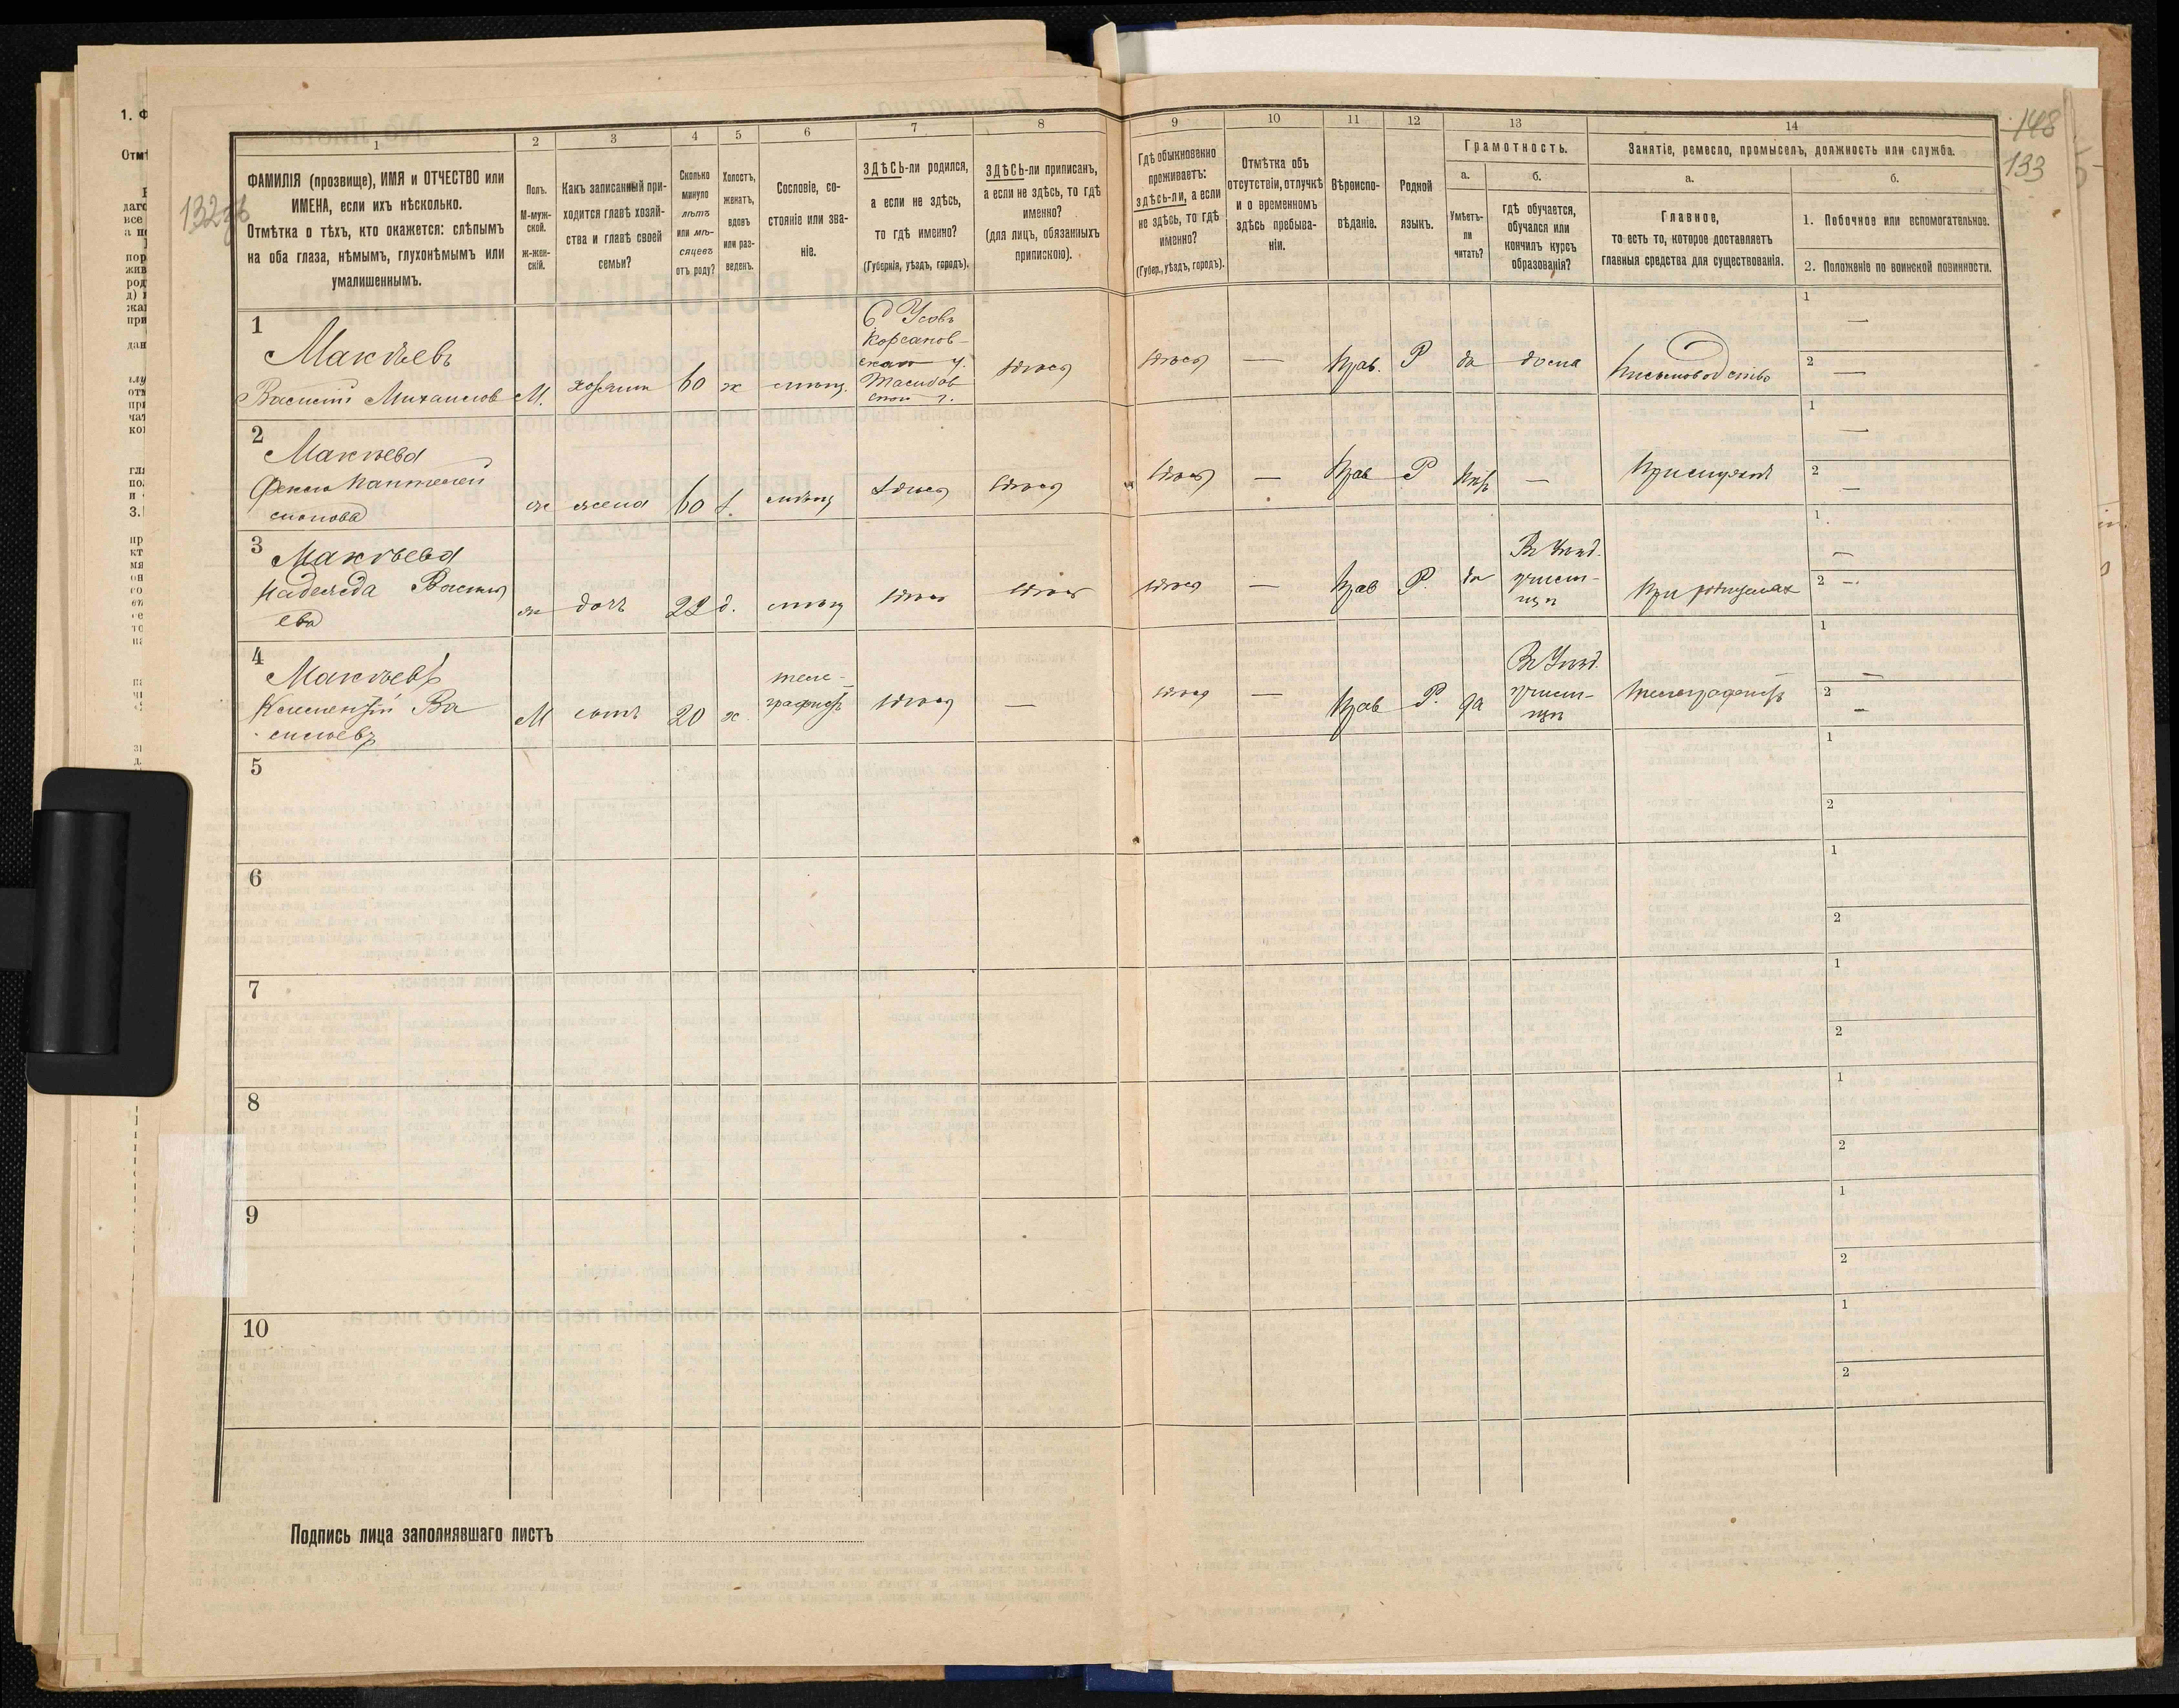 1. Ф
Отмѣ
148
133
132 об
1
ФАМИЛІЯ (прозвище), ИМЯ и ОТЧЕСТВО или
ИМЕНА, если ихъ нѣсколько.
Отмѣтка о тѣхъ, кто окажется: слѣпымъ
на оба глаза, нѣмымъ, глухонѣмымъ или
умалишеннымъ.
2
Полъ.
М-муж-
ской.
Ж-жен-
скій.
3
Какъ записанный при-
ходится главѣ хозяй-
ства и главѣ своей
семьи?
4
Сколько
минуло
лѣтъ
или мѣ-
сяцевъ
отъ роду?
5
Холостъ,
женатъ,
вдовъ
или раз-
веденъ.
6
Сословіе, со-
стояніе или зва-
ніе.
7
ЗДѢСЬ-ли родился,
а если не здѣсь,
то гдѣ именно?
(Губернія, уѣздъ, городъ).
8
ЗДѢСЬ-ли приписанъ,
а если не здѣсь, то гдѣ
именно?
(для лицъ, обязанныхъ
припискою).
9
Гдѣ обыкновенно
проживаетъ:
здѣсь-ли, а если
не здѣсь, то гдѣ
именно?
(Губер., уѣздъ, городъ).
10
Отмѣтка объ
отсутствіи, отлучкѣ
и о временномъ
здѣсь пребыва-
ніи.
11
Вѣроиспо-
вѣданіе.
12
Родной
языкъ.
13
Грамотность.
а.
Умѣетъ-
ли
читать?
б.
гдѣ обучается,
обучался или
кончилъ курсъ
образованія?
14
Занятіе, ремесло, промыселъ, должность или служба.
а.
Главное,
то есть то, которое доставляетъ
главныя средства для существованія.
б.
1. Побочное или вспомогательное.
2. Положеніе по воинской повинности.
1
Макѣевъ
Василій Михаиловъ
М.
хозяинъ
60
ж
мѣщ.
здѣсь
здѣсь
—
Прав.
Р
да
дома
письмоводство
1 —
2 —
2
Макѣева
Пантелей
монова
ж
жена
60
з.
мѣщ
здѣсь
здѣсь
здѣсь
—
Прав
Р
Нѣт
—
1 —
2 —
3
Макѣева
Надежда Василь
ева
ж
дочь
22
д.
мѣщ
здѣсь
здѣсь
здѣсь
—
Прав
Р.
да
Въ Уѣзд.
учили-
щѣ
При родителях
1 —
2 —
4
Макѣевъ
Ва
сильевъ
М
сынъ
20
х.
теле-
графистъ
здѣсь
—
здѣсь
—
Прав
Р.
да
Въ Уѣзд.
учили-
щѣ
телеграфистъ
1 —
2 —
5
1
2
6
1
2
7
1
2
8
1
2
9
1
2
10
1
2
Подпись лица заполнявшаго листъ